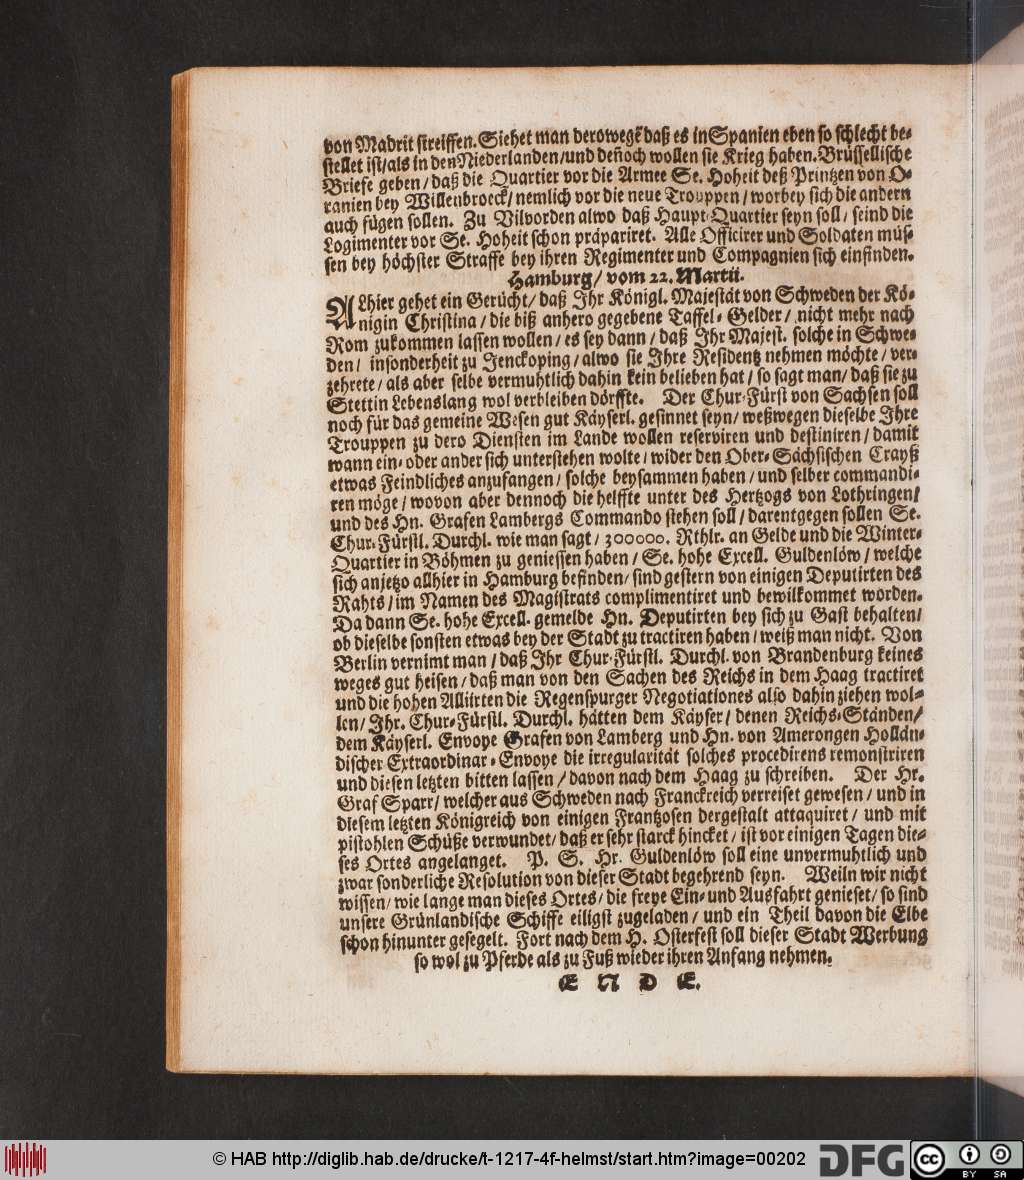 von Madrit streiffen. Siehet man derowegē daß es in Spanien eben so schlecht be-
stellet ist/als in den Niederlanden/und deñoch wollen sie Krieg haben. Brüssellische
Briefe geben/ daß die Quartier vor die Armee Se. Hoheit deß Printzen von O-
ranien bey Willenbroeck/ nemlich vor die neue Trouppen/ worbey sich die andern
auch fügen sollen. Zu Vilvorden alwo daß Haupt-Quartier seyn soll/ seind die
Logimenter vor Se. Hoheit schon präpariret. Alle Officirer und Soldaten müs-
sen bey höchster Straffe bey ihren Regimenter und Compagnien sich einfinden.
Hamburg/ vom 22. Martii.
ALhier gehet ein Gerücht/ daß Ihr Königl. Majestät von Schweden der Kö-
nigin Christina/ die biß anhero gegebene Taffel-Gelder/ nicht mehr nach
Rom zukommen lassen wollen/ es sey dann/ daß Ihr Majest. solche in Schwe-
den/ insonderheit zu Jenckoping/ alwo sie Ihre Residentz nehmen möchte/ ver-
zehrete/ als aber selbe vermuhtlich dahin kein belieben hat/ so sagt man/ daß sie zu
Stettin Lebenslang wol verbleiben dörffte. Der Chur-Fürst von Sachsen soll
noch für das gemeine Wesen gut Käyserl. gesinnet seyn/ weßwegen dieselbe Ihre
Trouppen zu dero Diensten im Lande wollen reserviren und destiniren/ damit
wann ein- oder ander sich unterstehen wolte/ wider den Ober-Sächsischen Crayß
etwas Feindliches anzufangen/ solche beysammen haben/ und selber commandi-
ren möge/ wovon aber dennoch die helffte unter des Hertzogs von Lothringen/
und des Hn. Grafen Lambergs Commando stehen soll/ darentgegen sollen Se.
Chur-Fürstl. Durchl. wie man sagt/ 300000. Rthlr. an Gelde und die Winter-
Quartier in Böhmen zu geniessen haben/ Se. hohe Excell. Guldenlöw/ welche
sich anjetzo allhier in Hamburg befinden/ sind gestern von einigen Deputirten des
Rahts/ im Namen des Magistrats complimentiret und bewilkommet worden.
Da dann Se. hohe Excell. gemelde Hn. Deputirten bey sich zu Gast behalten/
ob dieselbe sonsten etwas bey der Stadt zu tractiren haben/ weiß man nicht. Von
Berlin vernimt man/ daß Ihr Chur-Fürstl. Durchl. von Brandenburg keines
weges gut heisen/ daß man von den Sachen des Reichs in dem Haag tractiret
und die hohen Alliirten die Regenspurger Negotiationes also dahin ziehen wol-
len/ Ihr. Chur-Fürstl. Durchl. hätten dem Käyser/ denen Reichs-Ständen/
dem Käyserl. Envoye Grafen von Lamberg und Hn. von Amerongen Hollän-
discher Extraordinar-Envoye die irregularität solches procedirens remonstriren
und diesen letzten bitten lassen/ davon nach dem Haag zu schreiben. Der Hr.
Graf Sparr/ welcher aus Schweden nach Franckreich verreiset gewesen/ und in
diesem letzten Königreich von einigen Frantzosen dergestalt attaquiret/ und mit
pistohlen Schüße verwundet/ daß er sehr starck hincket/ ist vor einigen Tagen die-
ses Ortes angelanget. P. S. Hr. Guldenlöw soll eine unvermuhtlich und
zwar sonderliche Resolution von dieser Stadt begehrend seyn. Weiln wir nicht
wissen/ wie lange man dieses Ortes/ die freye Ein- und Ausfahrt genieset/ so sind
unsere Grünlandische Schiffe eiligst zugeladen/ und ein Theil davon die Elbe
schon hinunter gesegelt. Fort nach dem H. Osterfest soll dieser Stadt Werbung
so wol zu Pferde als zu Fuß wieder ihren Anfang nehmen.
E N D E.
© HAB http://diglib.hab.de/drucke/t-1217-4f-helmst/start.htm?image=00202
DFG
cc BY SA